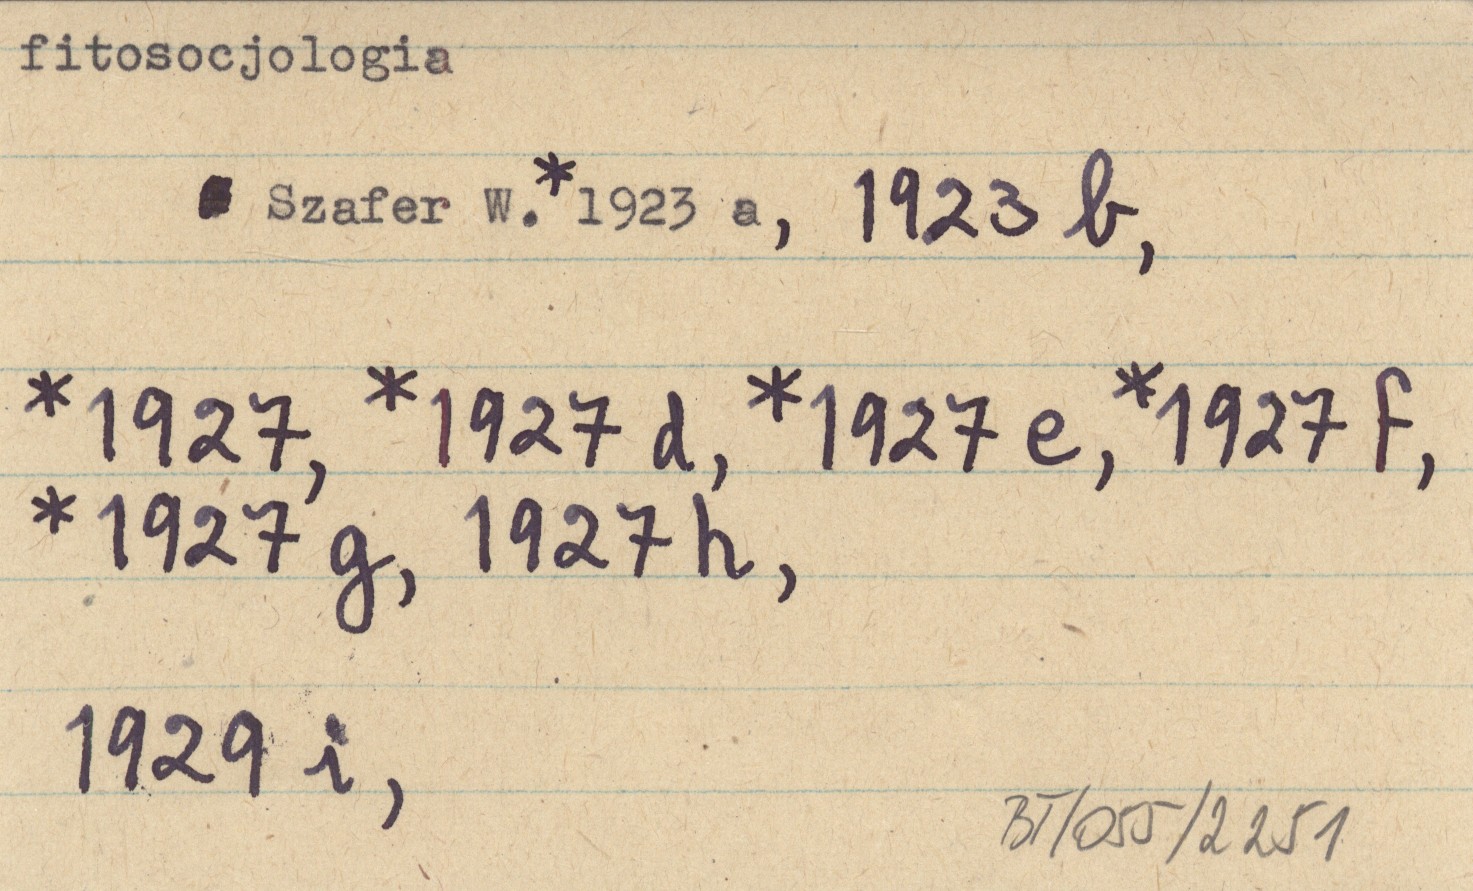 fitosocjologia
Szafer W.*1923 a, 1923 b,
*1927, *1927 d, *1927 e, *1927 f,
*1927 g, 1927 h,
1929 i,
BT/055/2251